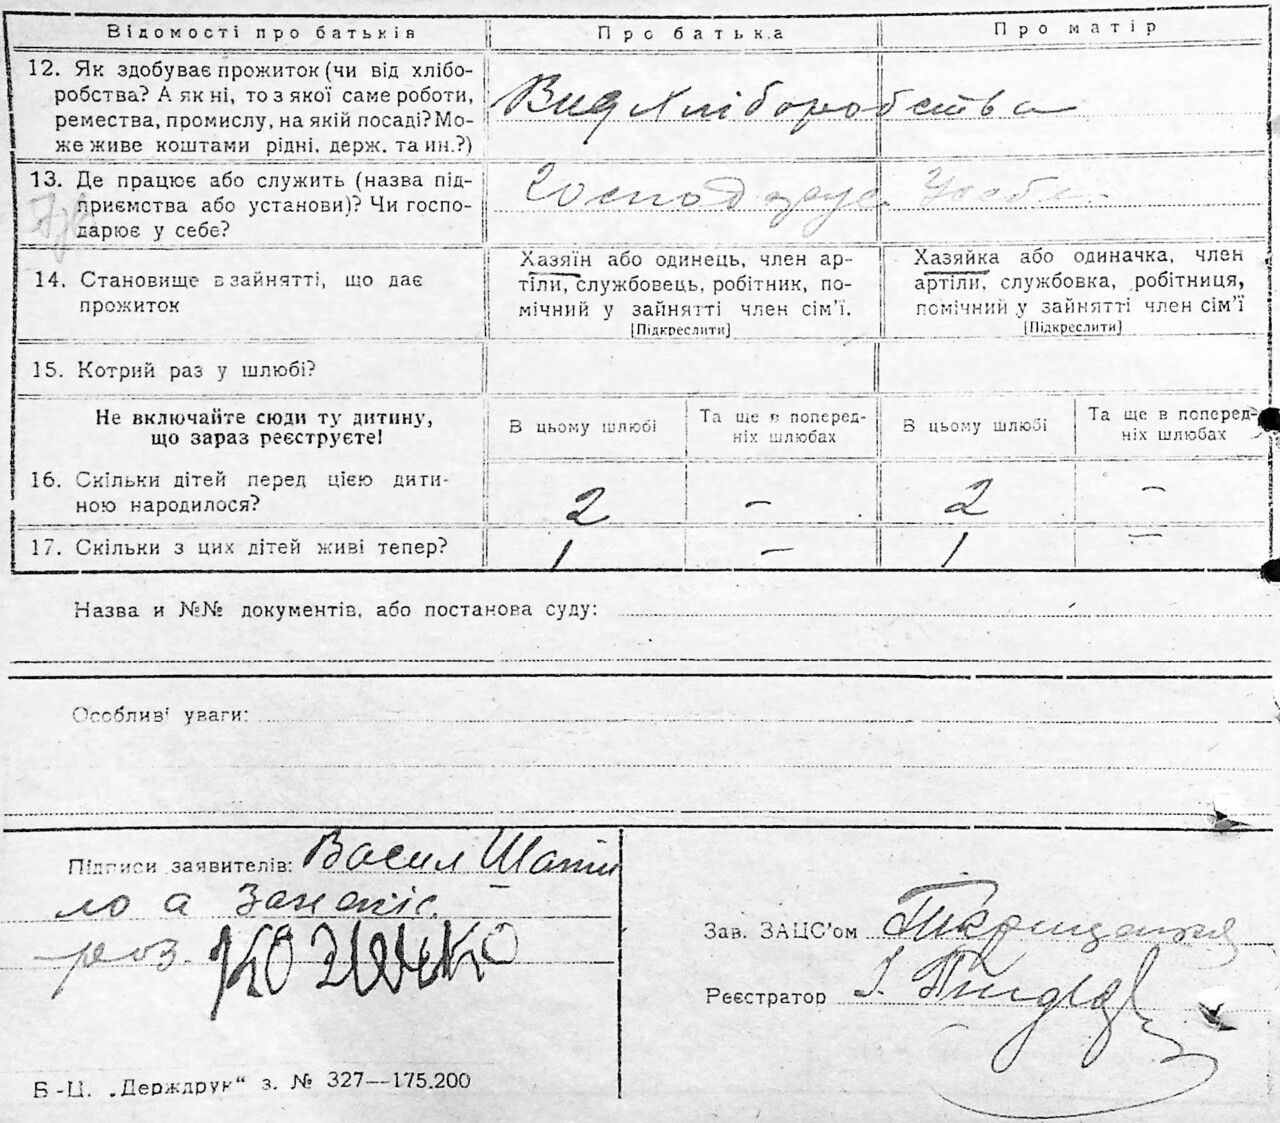 Відомості про батьків Про батька Про матір
12. Як здобуває прожиток (чи від хлібо-
робства? А як ні, то з якої саме роботи,
ремества, промислу, на якій посаді? Мо-
же живе коштами рідні, держ. та ин.?)
Вид хліборобства
13. Де працює або служить (назва під-
приємства або установи)? Чи госпо-
дарює у себе?
Господарує Усебе
14. Становище в зайнятті, що дає
прожиток
Хазяїн або одинець, член ар-
тіли, службовець, робітник, по-
мічний у зайнятті член сім'ї.
[Підкреслити]
Хазяйка або одиначка, член
артіли, службовка, робітниця,
помічний у зайнятті член сім'ї
[Підкреслити]
15. Котрий раз у шлюбі?
Не включайте сюди ту дитину,
що зараз реєструєте!
В цьому шлюбі
Та ще в поперед-
ніх шлюбах
В цьому шлюбі
Та ще в поперед-
ніх шлюбах
16. Скільки дітей перед цією дити-
ною народилося?
2 – 2 –
17. Скільки з цих дітей живі тепер?
1 – 1 –
Назва и №№ документів, або постанова суду:
Особливі уваги:
Підписи заявителів: Васил
ло а
роз.
Зав. ЗАЦС'ом
Реєстратор І.
Б-Ц. „Держдрук“ з. № 327—175.200